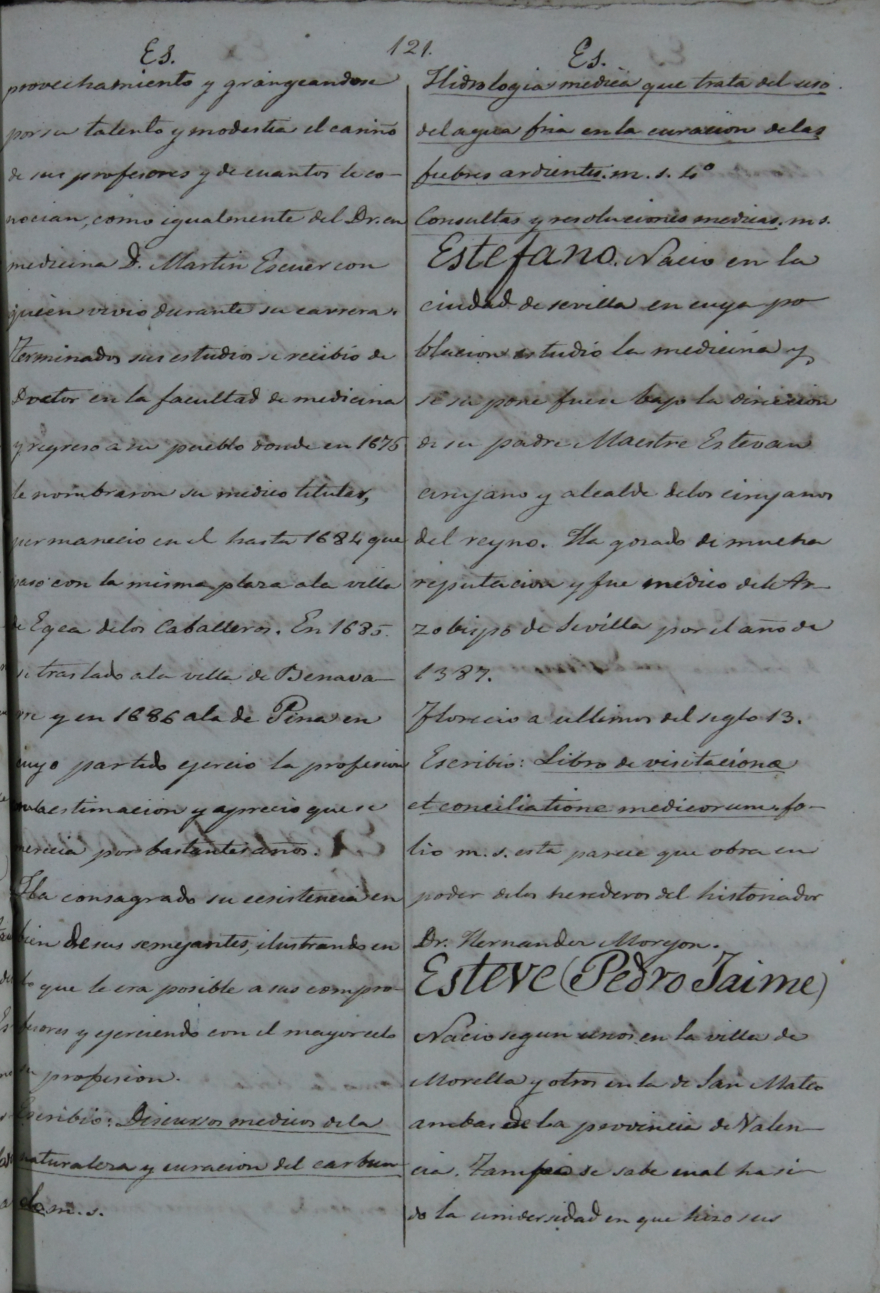 Es.
121.
Es.
provechamiento y grangeandose
por su talento y modestia el cariño
de sus profesores y de cuantos le co-
nocian, como igualmente del Dr. en
medicina D. Martin Escuer con
quien vivio durante su carrera.
Terminados sus estudios se recibio de
Doctor en la facultad de medicina
y regreso a su pueblo donde en 1676
le nombraron su medico titular,
permanecio en el hasta 1684 que
paso con la misma plaza a la villa
de Egea delos Caballeros. En 1685.
se traslado ala villa de Benava-
rre y en 1686 ala de Pina en
cuyo partido ejercio la profesion
estimacion y aprecio que se
merecia por bastantes años.
Ha consagrado su ecsistencia en
bien de sus semejantes, ilustrando en
lo que le era posible a sus compro-
fesores y ejerciendo con el mayor celo
su profesion.
Escribio: Discursos medicos dela
naturaleza y curacion del carbun-
clo m. s.
Hidrologia medica que trata del uso
del agua fria en la curacion delas
fiebres ardientes. m. s. 4º
Consultas y resoluciones medicas. m s.
Estefano. Nacio en la
ciudad de sevilla en cuya po
blacion estudio la medicina y
se supone fuese bajo la direccion
de su padre Maestre Estevan
cirujano y alcalde delos cirujanos
del reyno. Ha gozado de mucha
reputacion y fue médico del Ar-
zobispo de Sevilla por el año de
1387.
Florecio a ultimos del siglo 13.
Escribio: Libro de visitacione
et conciliatione medicorum. fo-
lio m. s. esta parece que obra en
poder delos herederos del historiador
Dr. Hernander Morejon.
Esteve (Pedro Jaime)
Nacio segun unos en la villa de
Morella y otros en la de San Mateo
ambas de la provincia de Valen-
cia. Tampoco se sabe cual ha si-
do la universidad en que hizo sus